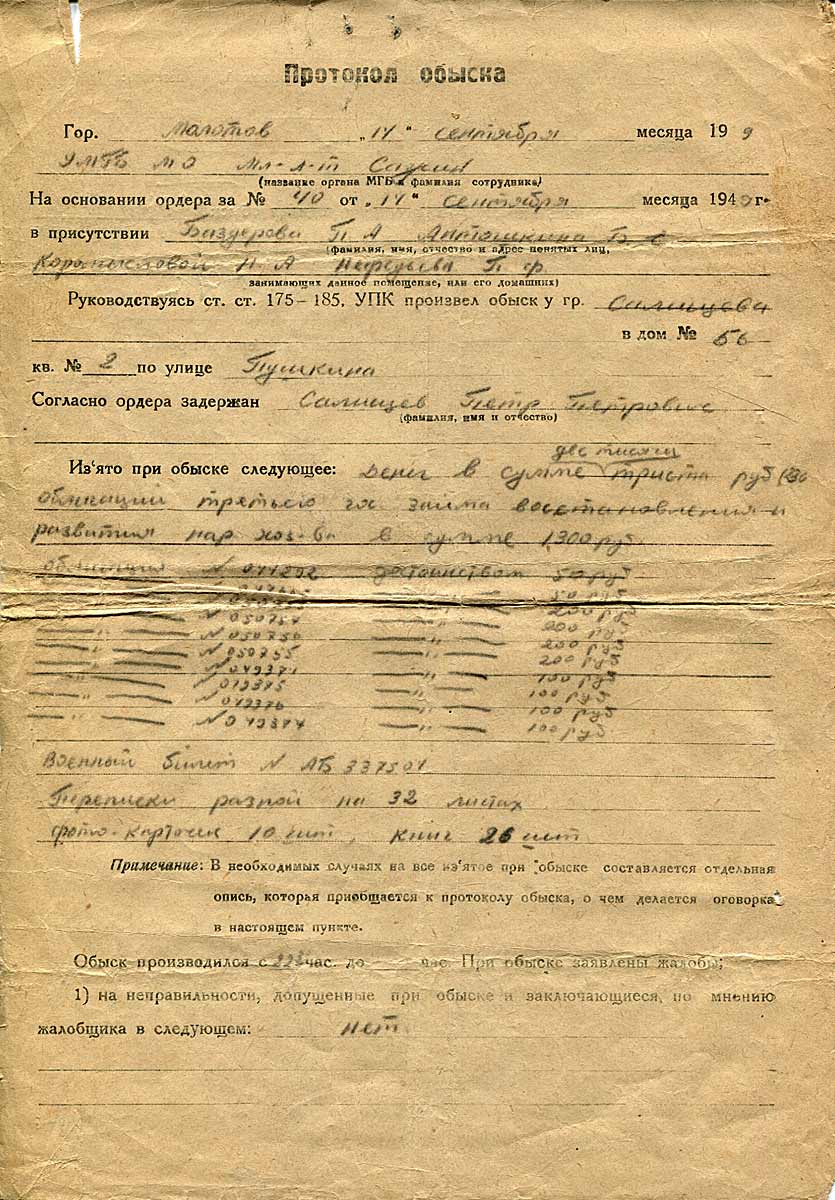 Протокол обыска
Гор. Молотов „14“ сентября месяца 19 9
УМГБ МО Мл-л-т
(название органа МГБ и фамилия сотрудника)
На основании ордера за № 40 от „14“ сентября месяца 194 г.
в присутствии П А Антошкина Б
(фамилия, имя, отчество и адрес понятых лиц,
Н А Нефедьева П
занимающих данное помещение, или его домашних)
Руководствуясь ст. ст. 175–185, УПК произвел обыск у гр.
в дом № 56
кв. № 2 по улице Пушкина
Согласно ордера задержан Петр Петрович
(фамилия, имя и отчество)
две тысячи
Из‘ято при обыске следующее: Денег в сумме триста руб
облигаций третьего гос займа восстановления и
развития нар хоз-ва в сумме 1300 руб
облигация N 044292 достоинством 50 руб
50 руб
200 руб
— „ — N 050757 — „ — 200 руб
— „ — N 050756 — „ — 200 руб
— „ — N 050755 — „ — 200 руб
— „ — N 049371 — „ — 100 руб
— „ — — „ — 100 руб
— „ — — „ — 100 руб
— „ — — „ — 100 руб
Военный билет N АБ 337501
Переписки разной на 32 листах
фото-карточек 10 шт, книг 26 шт
Примечание: В необходимых случаях на все из‘ятое при обыске составляется отдельная
опись, которая приобщается к протоколу обыска, о чем делается оговорка
в настоящем пункте.
Обыск производился с час. до час. При обыске заявлены жалобы;
1) на неправильности, допущенные при обыске и заключающиеся, по мнению
жалобщика в следующем: нет